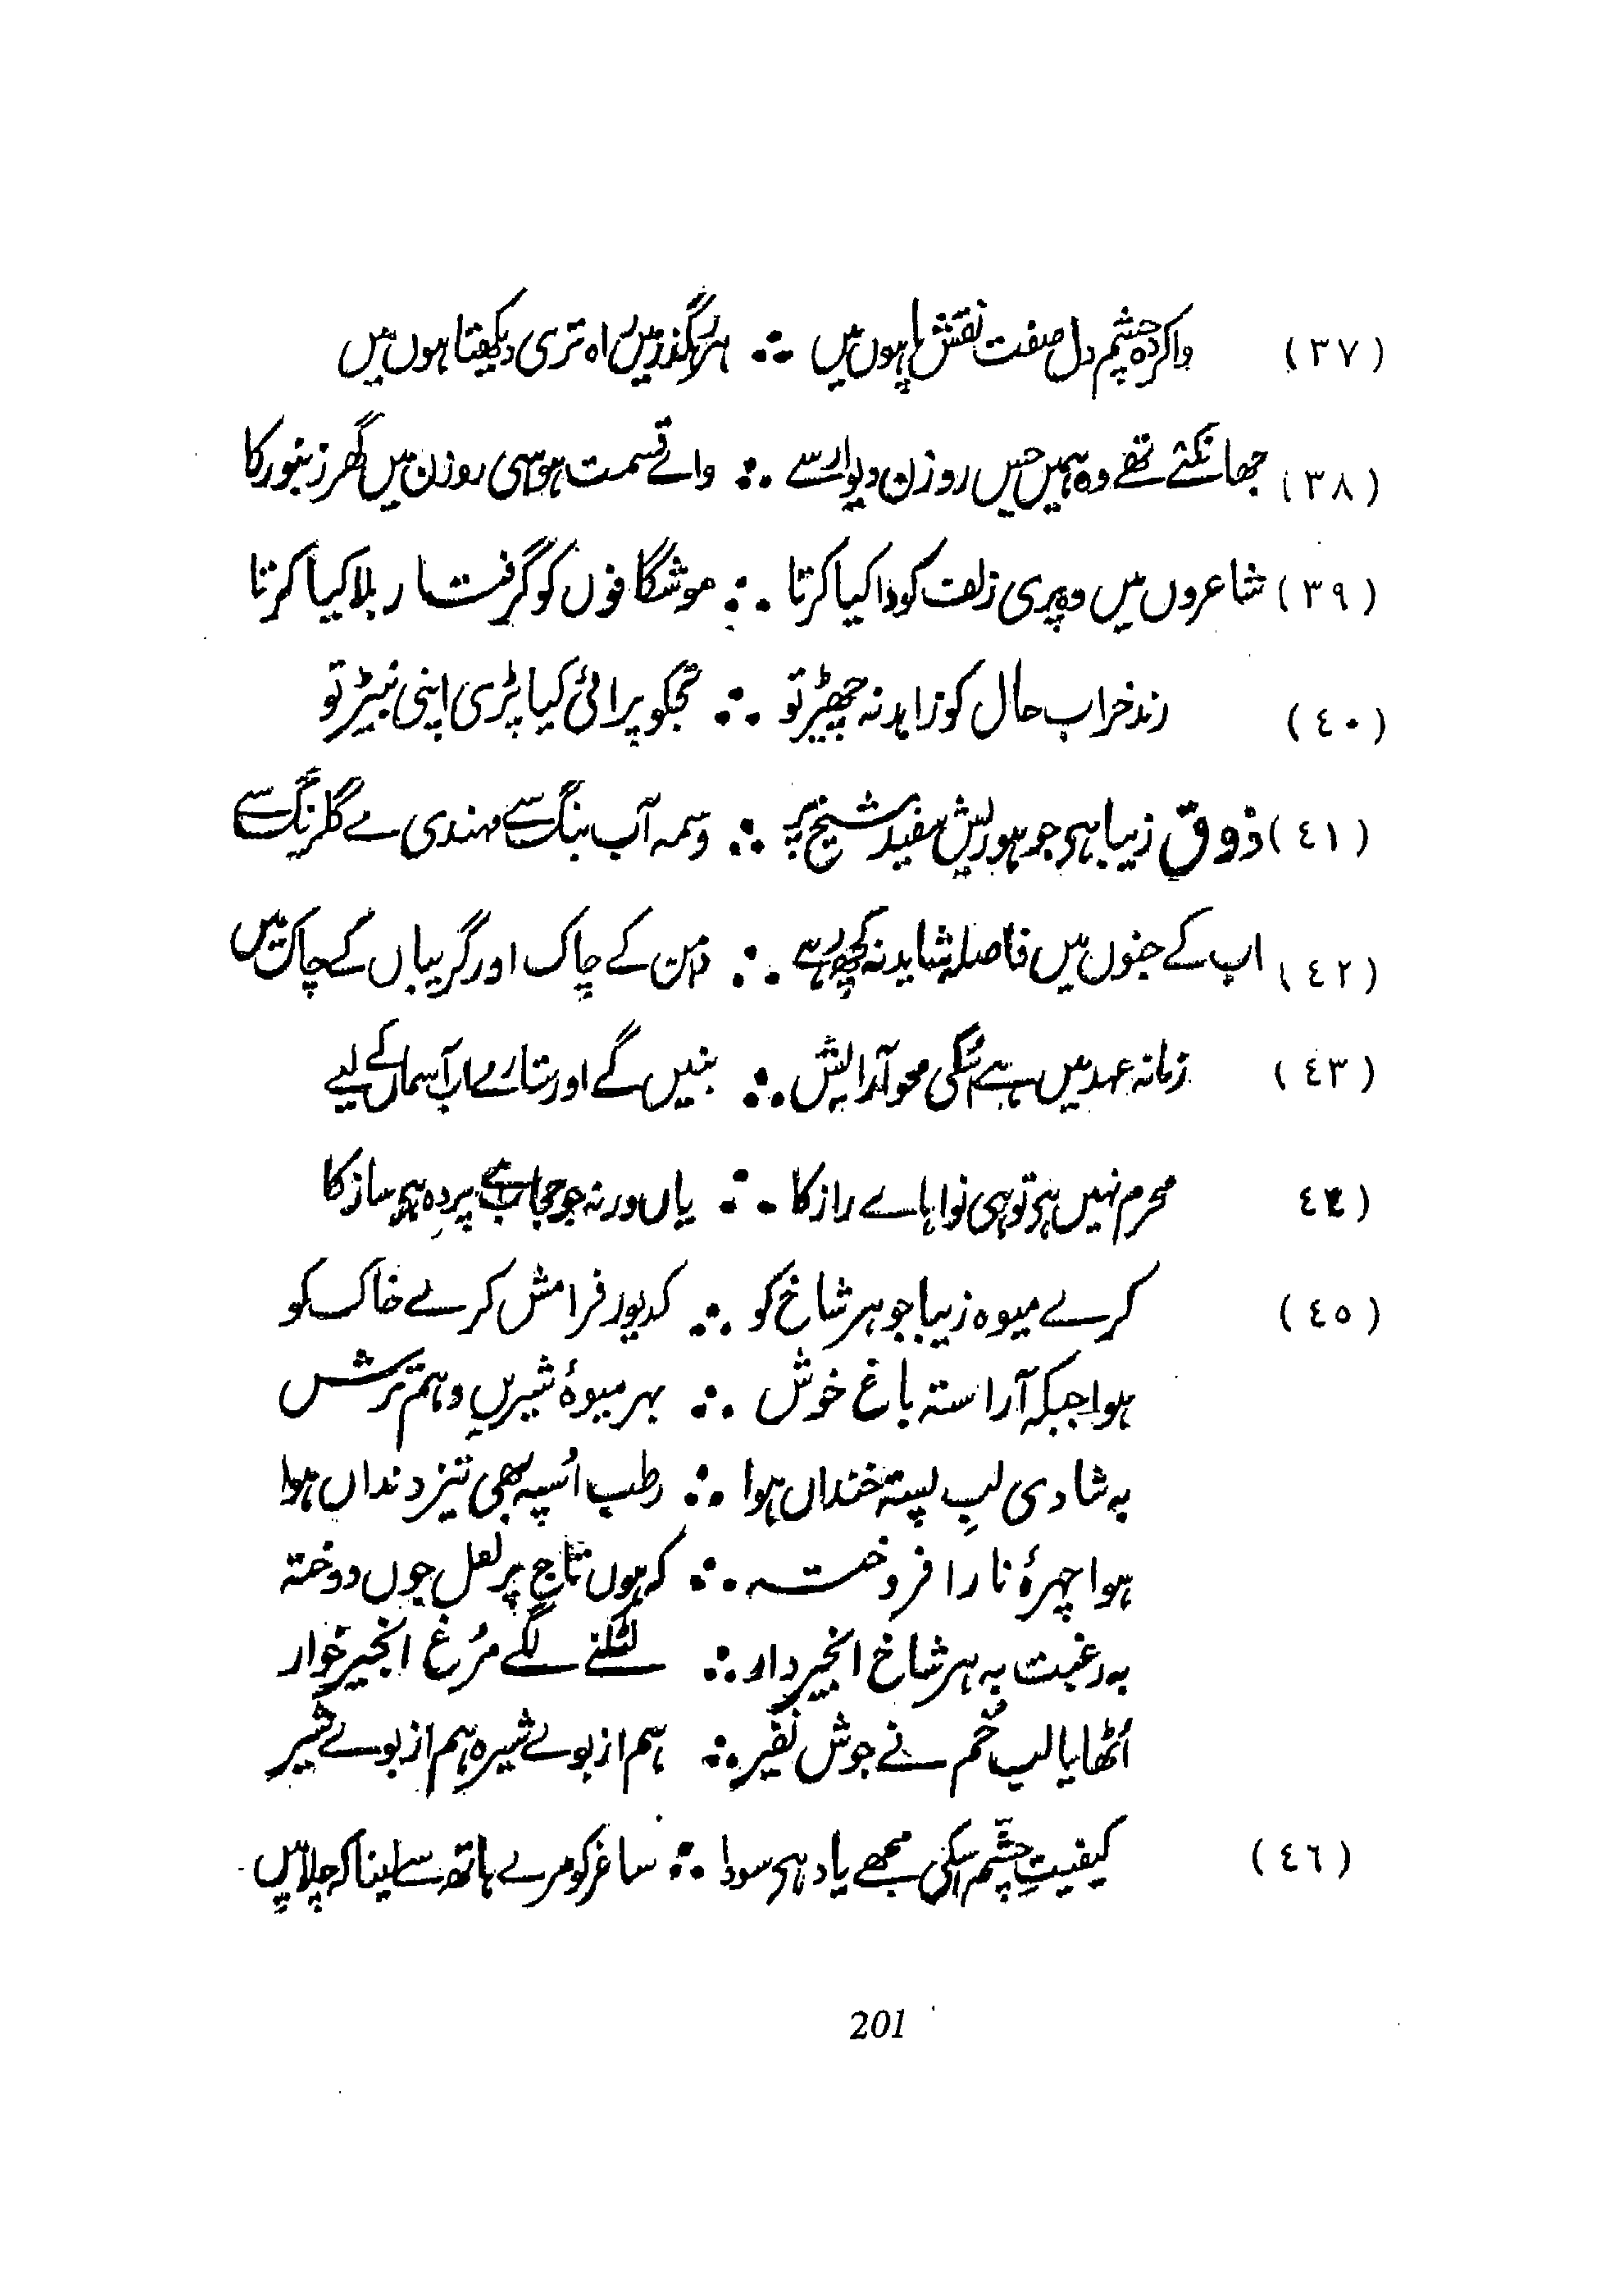 (٣٧) واکردہ چشم دل صفت نقش پا ہوں میں ∴ ہر رہگذر میں راہ تری دیکھتا ہوں میں
(٣٨) جھانکتے تھے وہ ہمیں جس روزن دیوار سے ∴ وائے قسمت ہو اسی روزن میں گھر زنبور کا
(٣٩) شاعروں میں وہ پری زلف کو وا کیا کرتا ∴ موشگافوں کو گرفتار بلا کیا کرتا
(٤٠) رند خراب حال کو زاہد نہ چھیڑ تو ∴ تجکو پرائی کیا پڑی اپنی نبیڑ تو
(٤١) ذوق زیبا ہی جو ہو ریش سفید شیخ پر ∴ وسمہ آب بنگ سے مہندی مے گلرنگ سے
(٤٢) اب کے جنوں میں فاصلہ شاید نہ کچھ رہے ∴ دامن کے چاک اور گریباں کے چاک میں
(٤٣) زمانہ عہد میں ہے اسکی محو آرایش ∴ بنیں گے اور ستارے اب آسماں کے لیے
(٤٤) محرم نہیں ہی تو ہی نوا ہاے راز کا ∴ یاں ورنہ جو حجاب ہے پردہ ہی ساز کا
(٤٥) کرے میوہ زیبا جو ہر شاخ کو ∴ کدیور فرامش کرے خاک کو
ہوا جبکہ آراستہ باغ خوش ∴ بہر میوۂ شیریں و ہم ترش
بہ شادی لبِ پستہ خنداں ہوا ∴ رطب اُسپہ بھی تیز دنداں ہوا
ہوا چہرۂ نار افروختہ ∴ کہ ہوں تاج پر لعل جوں دوختہ
بہ رغبت بہ ہر شاخ انجیر دار ∴ لٹکنے لگے مرُغ انجیر خوار
اُٹھایا لب خُم نے جوش نفیر ∴ ہم از بوے شیرہ ہم از بوے شیر
(٤٦) کیفیتِ چشم اسکی مجھے یاد ہی سودا ∴ ساغر کو مرے ہاتھ سے لینا کہ چلا میں
201